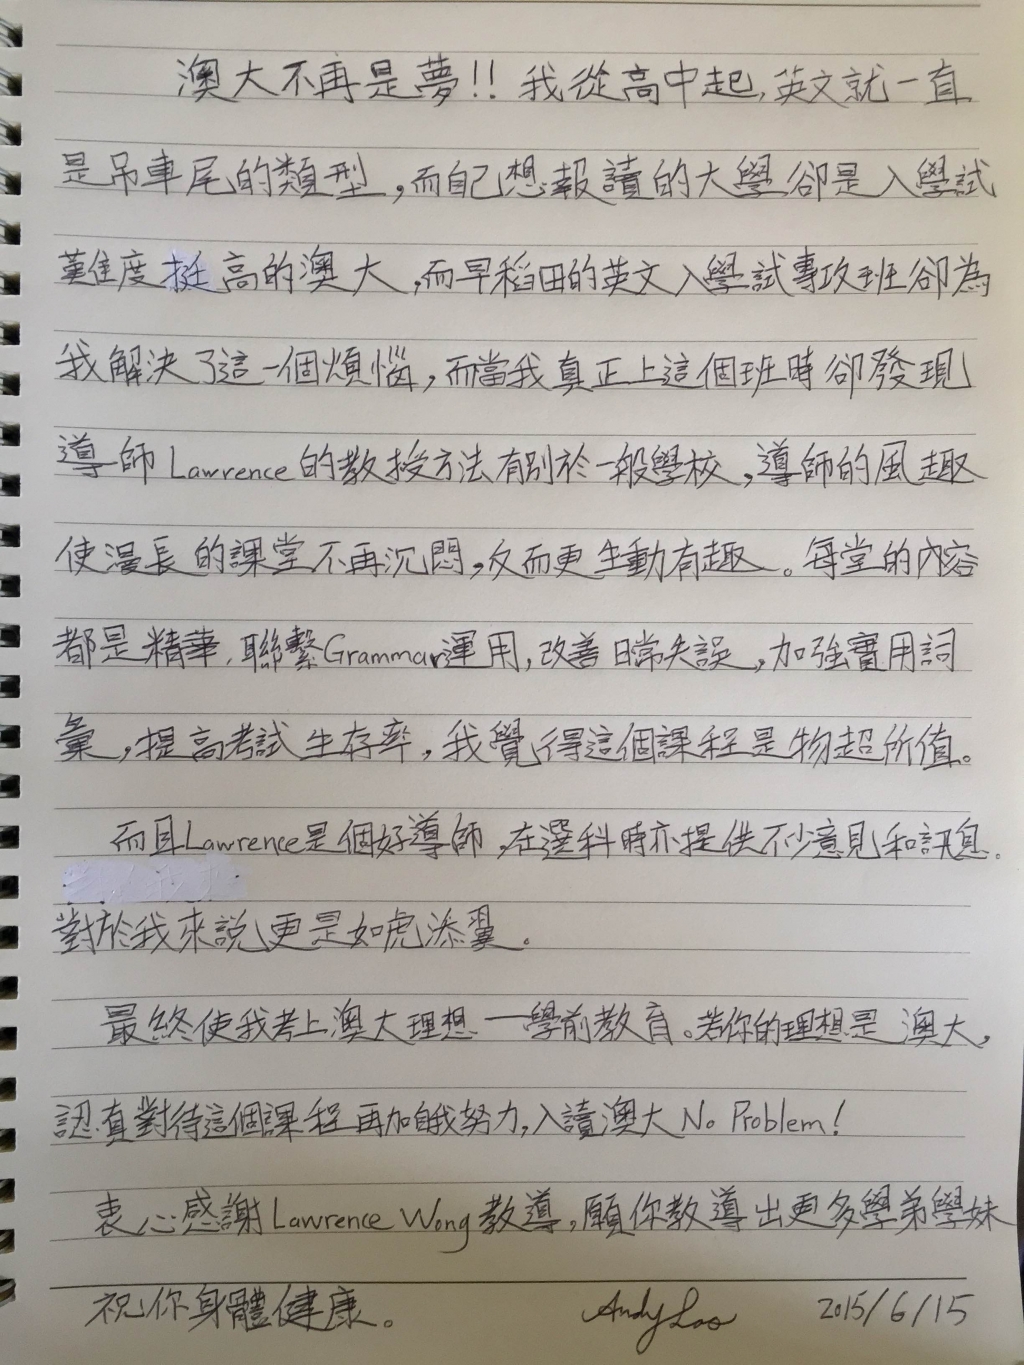 澳大不再是夢!! 我從高中起,英文就一直
是吊車尾的類型,而自己想報讀的大學卻是入學試
難度挺高的澳大,而早稻田的英文入學試專攻班卻為
我解決了這一個煩惱,而當我真正上這個班時卻發現
導師Lawrence的教授方法有別於一般學校,導師的風趣
使漫長的課堂不再沉悶,反而更生動有趣。每堂的內容
都是精華,聯繫Grammar運用,改善日常失誤,加強實用詞
彙,提高考試生存率,我覺得這個課程是物超所值。
而且Lawrence是個好導師,在選科時亦提供不少意見和訊息.
對於我來說更是如虎添翼.
最終使我考上澳大理想一學前教育。若你的理想是澳大,
認真對待這個課程再加自我努力,入讀澳大No Problem!
衷心感謝Lawrence Wong教導,願你教導出更多學弟學妹
祝你身體健康。 Andy Lao 2015/6/15